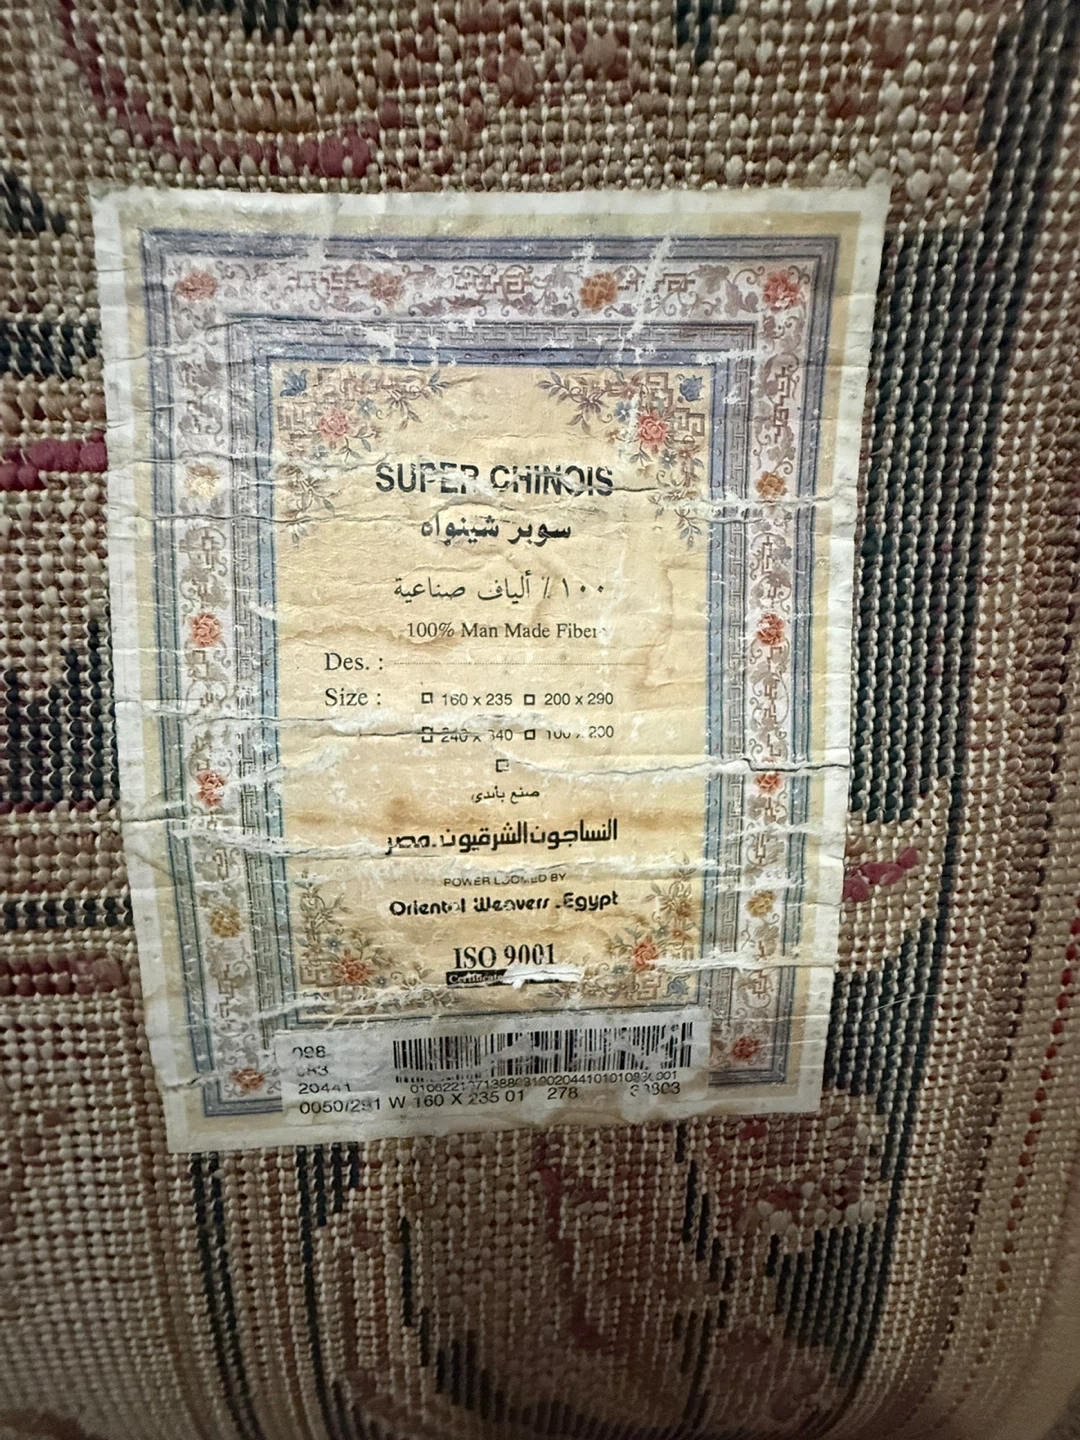 SUPER CHINOIS
سوبر شينواه
١٠٠ ٪ ألياف صناعية
100% Man Made Fiber
Des. :
Size : 160 x 235 200 x 290
240 x 340
صنع بأيدى
النساجون الشرقيون . مصر
POWER LOOMED BY
Oriental Weavers . Egypt
ISO 9001
098
083
20441
0050/291 W 160 X 235 01 278